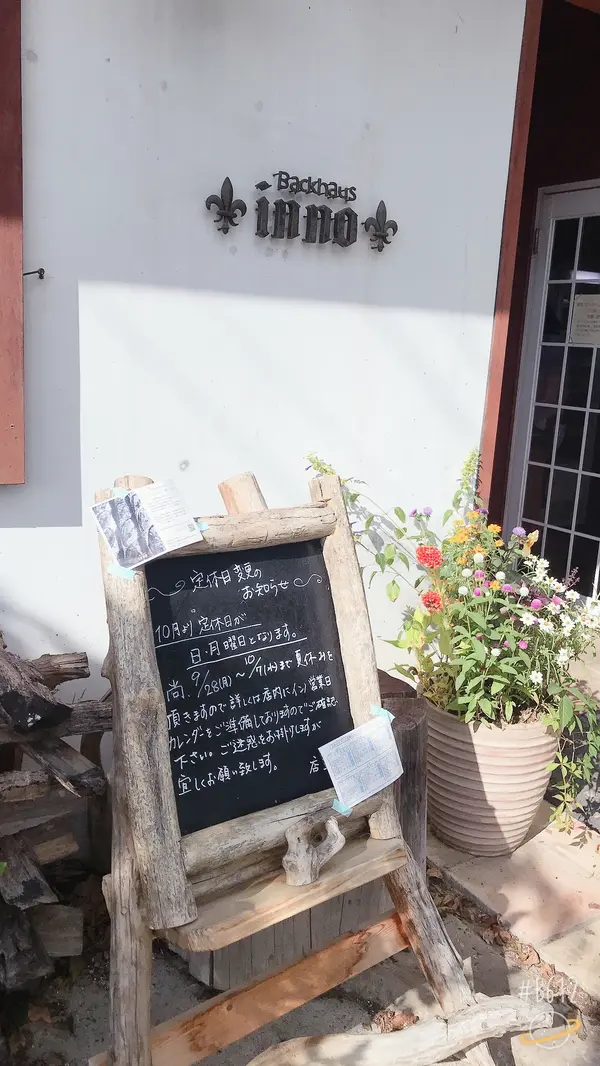 Backhaus
inno
定休日変更の
お知らせ
10月より定休日が
日・月曜日となります。
尚、9/28(月)〜10/7(水)まで夏休みを
頂きますので詳しくは店内にイノ営業日
カレンダーをご準備しておりますのでご確認
下さい。ご迷惑をお掛けしますが
宜しくお願い致します。 店
#B612